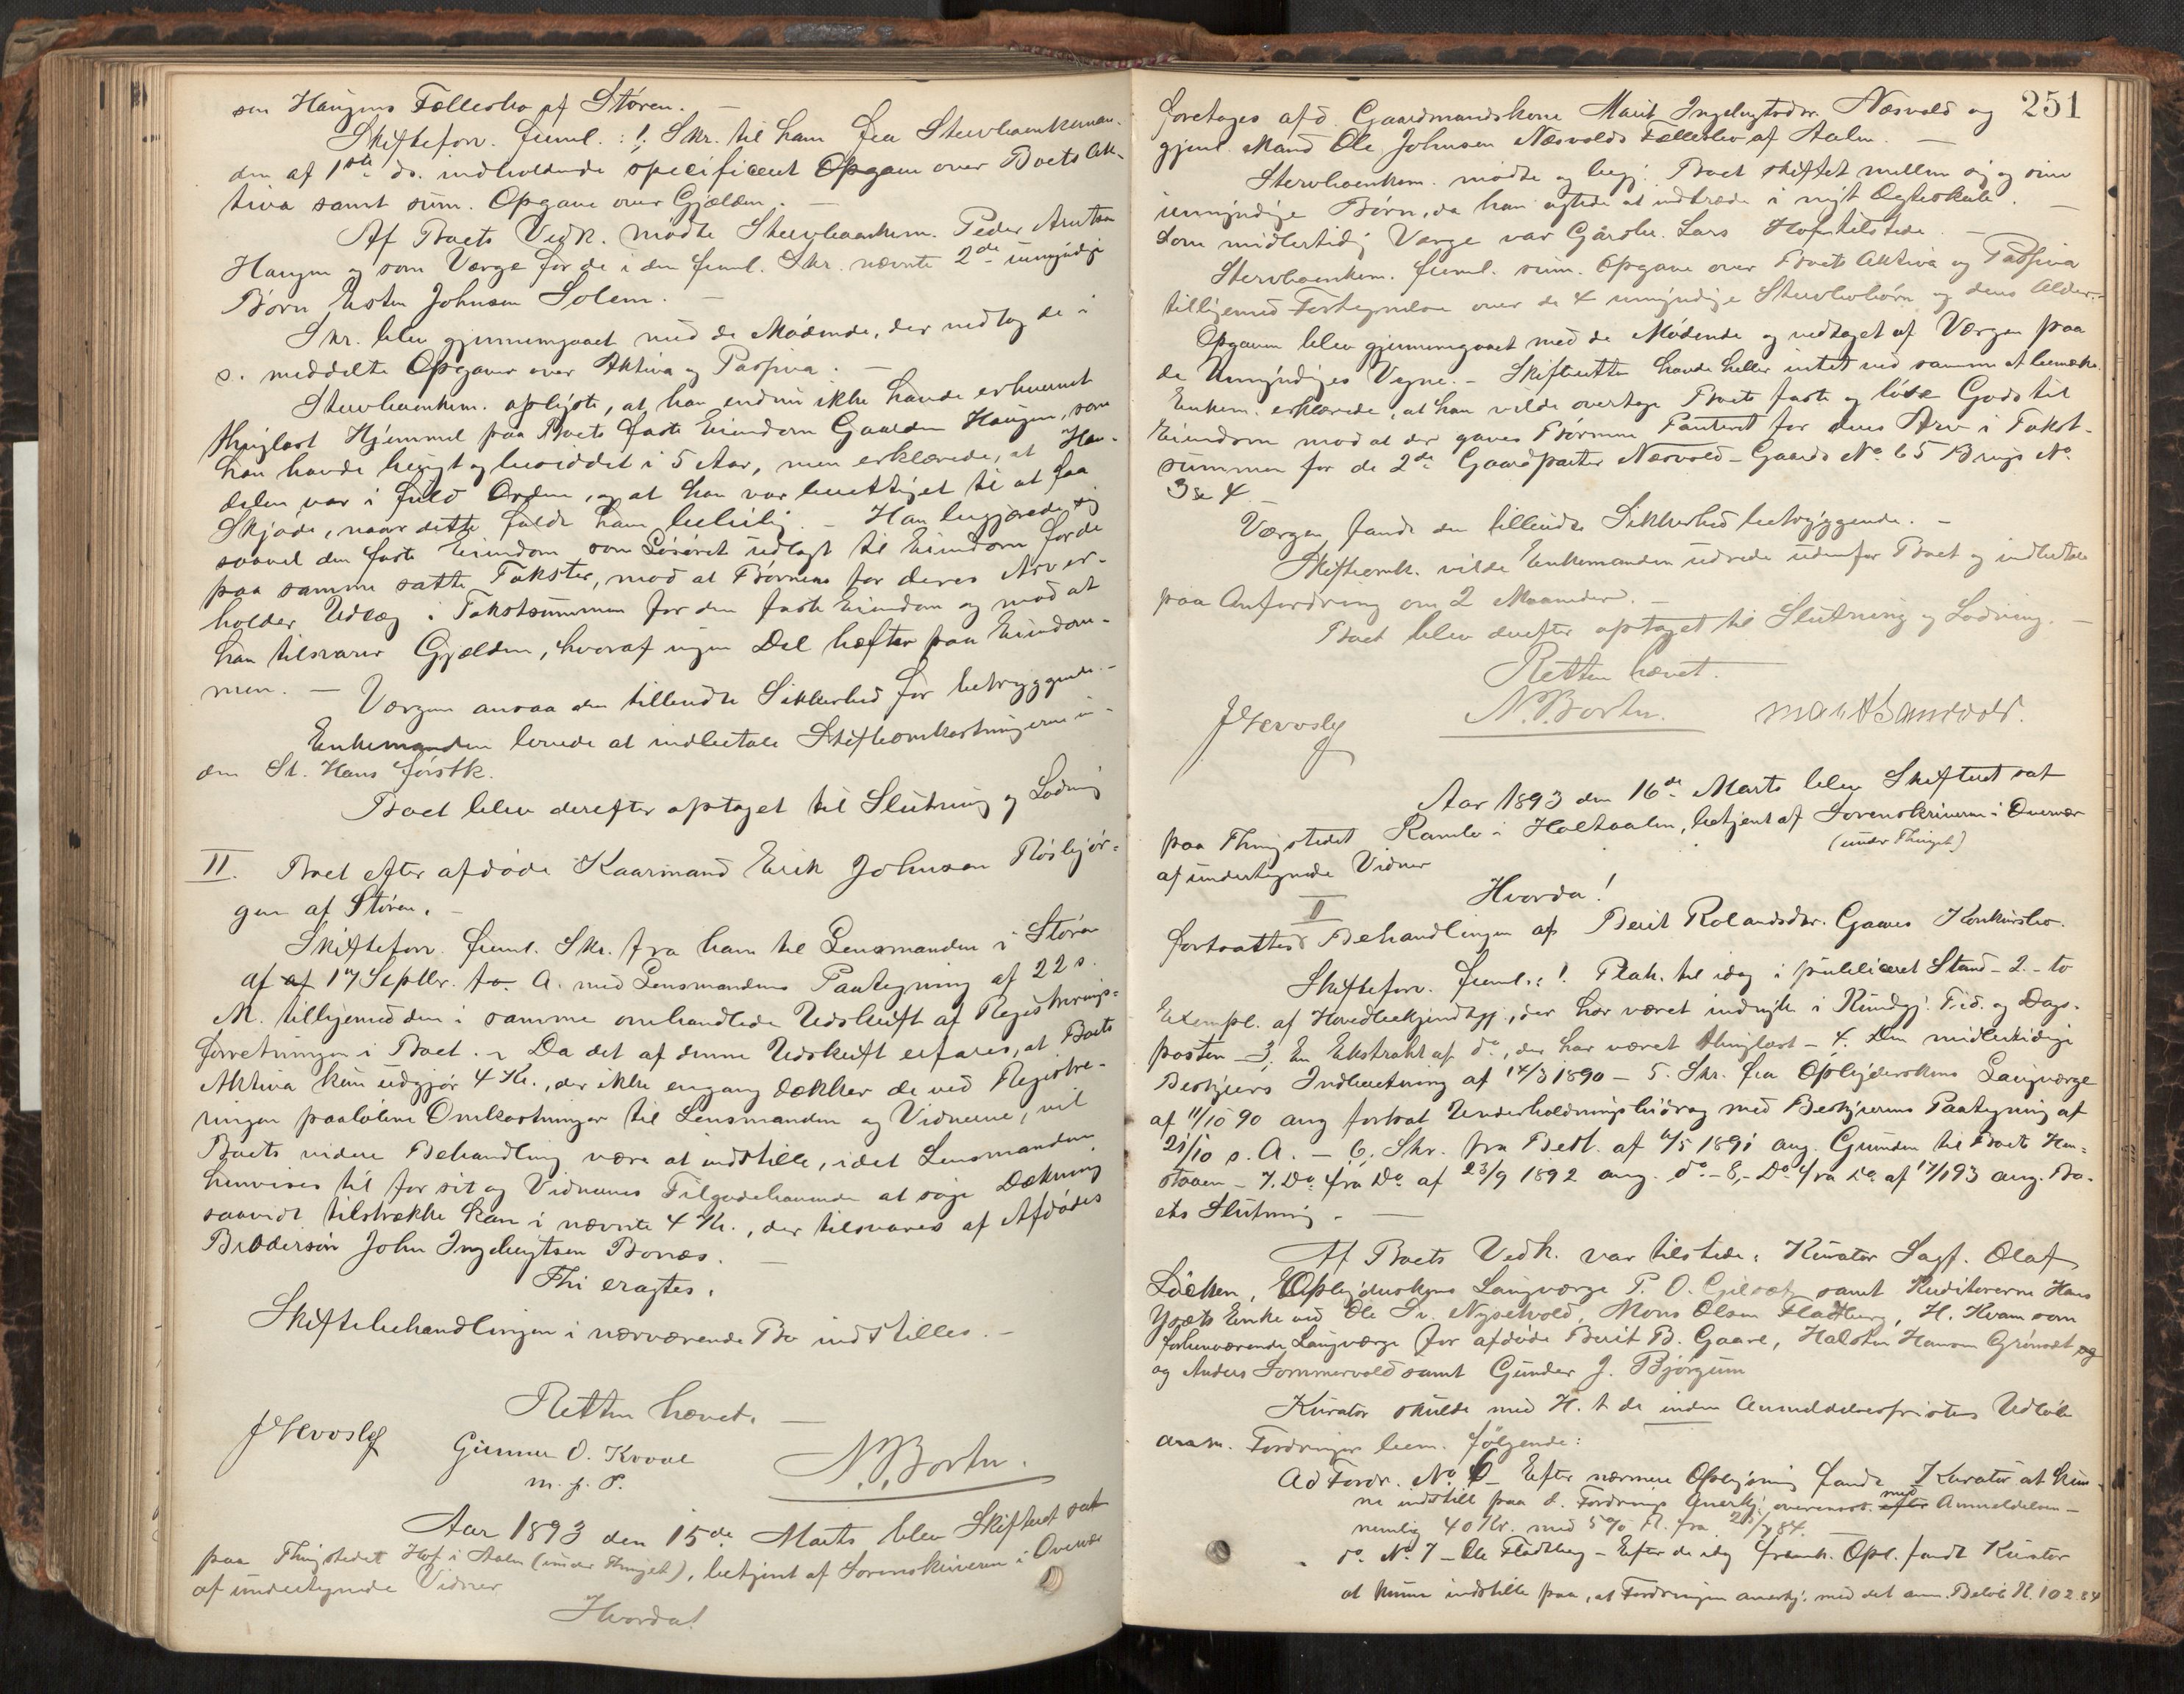 sen Haugens Fællesbo af Støren. —
Skifteforv. freml.: 1, Skr. til ham fra Stervboenkeman-
den af 1ste ds. indholdende specificeret Opgave over Boets Ak-
tiva samt sum. Opgave over Gjælden. —
Af Boets Vedk. mødte Stervboenkem. Peder Arntsen
Haugen og som Værge for de i den freml. Skr. nævnte 2de umyndige
Børn, Esten Johnsen Solem. —
Skr. blev gjennemgaaet med de Mødende, der vedtog de i
s. meddelte Opgaver over Aktiva og Passiva. —
Stervboenkem. oplyste, at han endnu ikke havde erhvervet
thinglæst Hjemmel paa Boets faste Eiendom Gaarden Haugen, som
han havde brugt og besiddet i 5 Aar, men erklærede, at Han-
delen var i fuld Orden, og at han var berettiget til at faa
Skjøde, naar dette faldt ham beleilig. — Han begjærede sig
saavel den faste Eiendom som Løsøret udlagt til Eiendom for de
paa samme satte Takster, mod at Børnene for deres Arv er-
holder Udlæg i Takstsummen for den faste Eiendom og mod at
han tilsvarer Gjælden, hvoraf ingen Del hæfter paa Eiendom-
men. — Værgen ansaa den tilbudte Sikkerhed for betryggende. —
Enkemanden lovede at indbetale Skifteomkostningerne in-
den St. Hans førstk.
Boet blev derefter optaget til Slutning og Lodning
II. Boet efter afdøde Kaarmand Erik Johnsen Røsbjør-
gen af Støren. —
Skifteforv. freml. Skr. fra ham til Lensmanden i Støren
af af 17 Septbr. f. A. med Lensmandens Paategning af 22 s.
M. tilligemed den i samme omhandlede Udskrift af Registrerings-
forretningen i Boet. — Da det af denne Udskrift erfares, at Boets
Aktiva kun udgjør 4 Kr., der ikke engang dækker de ved Registre-
ringen paaløbne Omkostninger til Lensmanden og Vidnerne, vil
Boets videre Behandling være at indstille, idet Lensmanden
henvises til for sit og Vidnernes Tilgodehavende at søge Dækning
saavidt tilstrække kan i nævnte 4 Kr., der tilsvares af Afdødes
Brodersøn John Ingebrigtsen Bones. —
Thi eragtes,
Skiftebehandlingen i nærværende Bo indstilles. —
Retten hævet. —
Gunner O. Krovl
m. p. P.
N. Borten.
Aar 1893 den 15de Marts blev Skifteret sat
paa Thingstedet Hof i Aalen (under Thinget), betjent af Sorenskriveren i Overvær
af undertegnede Vidner
Hvorda!
251
foretoges afd. Gaardmandskone Marit Ingebrigtsdtr. Næsvold og
gjenl. Mand Ole Johnsen Næsvolds Fællesbo af Aalen. —
Stervboenkem. mødte og begj. Boet skiftet mellem sig og sine
umyndige Børn, da han agtede at indtræde i nyt Ægteskab. —
Som midlertidig Værge var Gårdbr. Lars Hof tilstede. —
Stervboenkem. freml. sum. Opgave over Boets Aktiva og Passiva
tilligemed Fortegnelse over de 4 umyndige Stervbobørn og deres Alder. —
Opgaven blev gjennemgaaet med de Mødende og vedtaget af Værgen paa
de Umyndiges Vegne. — Skifteretten havde heller intet ved samme at bemærke.
Enkem. erklærede, at han vilde overtage Boets faste og løse Gods til
Eiendom mod at der gaves Børnene Panteret for deres Arv i Takst-
summen for de 2de Gaardparter Næsvold — Gaards No. 65 Brugs No.
3 & 4.
Værgen fandt den tilbudte Sikkerhed betryggende. —
Skifteomk. vilde Enkemanden udrede udenfor Boet og indbetale
paa Anfordring om 2 Maaneder. —
Boet blev derefter optaget til Slutning og Lodning. —
Retten hævet.
N. Borten.
Aar 1893 den 16de Marts blev Skifteret sat
paa Thingstedet Ramlo i Holtaalen, betjent af Sorenskriveren i Overvær
(under Thinget)
af undertegnede Vidner
Hvorda!
II
fortsattes Behandlingen af Berit Rolandsdtr. Gaares Konkursbo.
Skifteforv. freml.: 1. Plak. til idag i publiceret Stand — 2. — to
Exempl. af Hovedbekjendtgj., der har været indrykt i Kundgj. Tid. og Dags-
posten — 3. En Ekstrakt af do., der har været thinglæst — 4. Den midlertidige
Bestyrers Indberetning af 14/3 1890 — 5. Skr. fra Opbyderskens Laugværge
af 11/10 90 ang fortsat Underholdningsbidrag med Bestyrerens Paategning af
21/10 s. A. — 6. Skr. fra Best. af 6/5 1891 ang. Grunden til Boets Hen-
staaen — 7. Do. fra Do. af 23/9 1892 ang. do. — 8, — Do. fra Do. af 17/1 93 ang. Bo-
ets Slutning. —
Af Boets Vedk. var tilstede: Kurator Sagf. Olaf
Löcken, Opbyderskens Laugværge P. O. samt Kreditorerne Hans
Ysæts Enke ved Ole Mons Olsen Fladberg, H. Kvam som
forhenværende Laugværge for afdøde Berit B. Gaare, Halsten Hansen Grønset og
og Anders Sommervold samt Gunder J. Bjørgum
Kurator skulde med H. t de inden Anmeldelsesfristens Udløb
anm. Fordringer bem. følgende:
Ad Fordr. No. 6 — Efter nærmere Oplysning fandt Kurator at kun-
ne indstille paa d. Fordrings Anerkj. overensst. med efter Anmeldelsen —
nemlig 40 Kr. med 5% R. fra 84. —
do. No. 7 — Ole Fladberg — Efter de idag fremk. Opl. fandt Kurator
at kunne indstille paa, at Fordringen anerkj. med det anm. Beløb Kr. 102.84